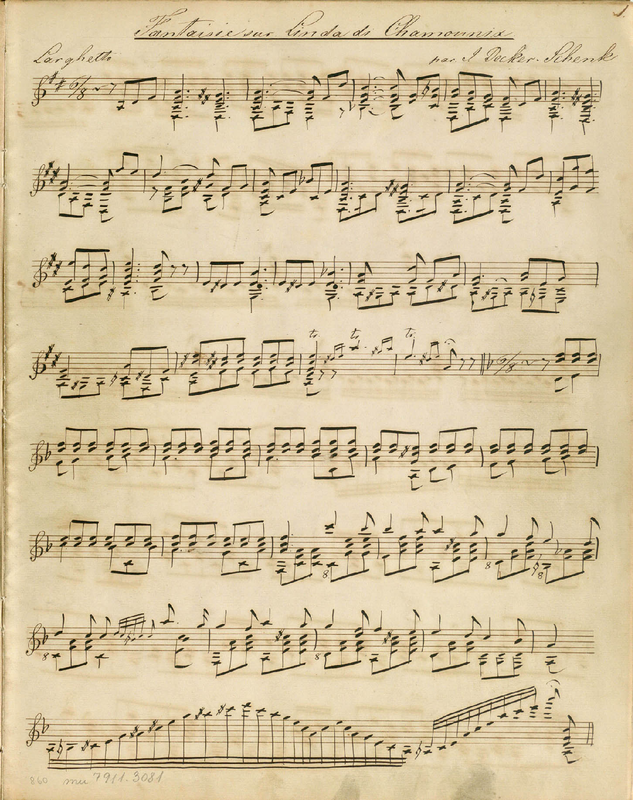 1.
Fantaisie sur Linda di Chamounix
Larghetto
par J Decker-Schenk
6/8
tr tr tr
6/8
8
8 8 8
8 8
860 mu 7911.3081